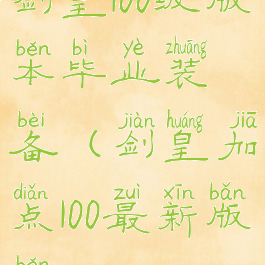 剑皇100级版
běn bì yè zhuāng
本毕业装
bèi jiàn huáng jiā
备（剑皇加
diǎn zuì xīn bǎn
点100最新版
běn